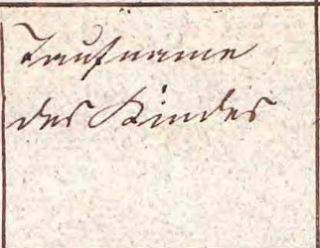 Taufname
des Kindes